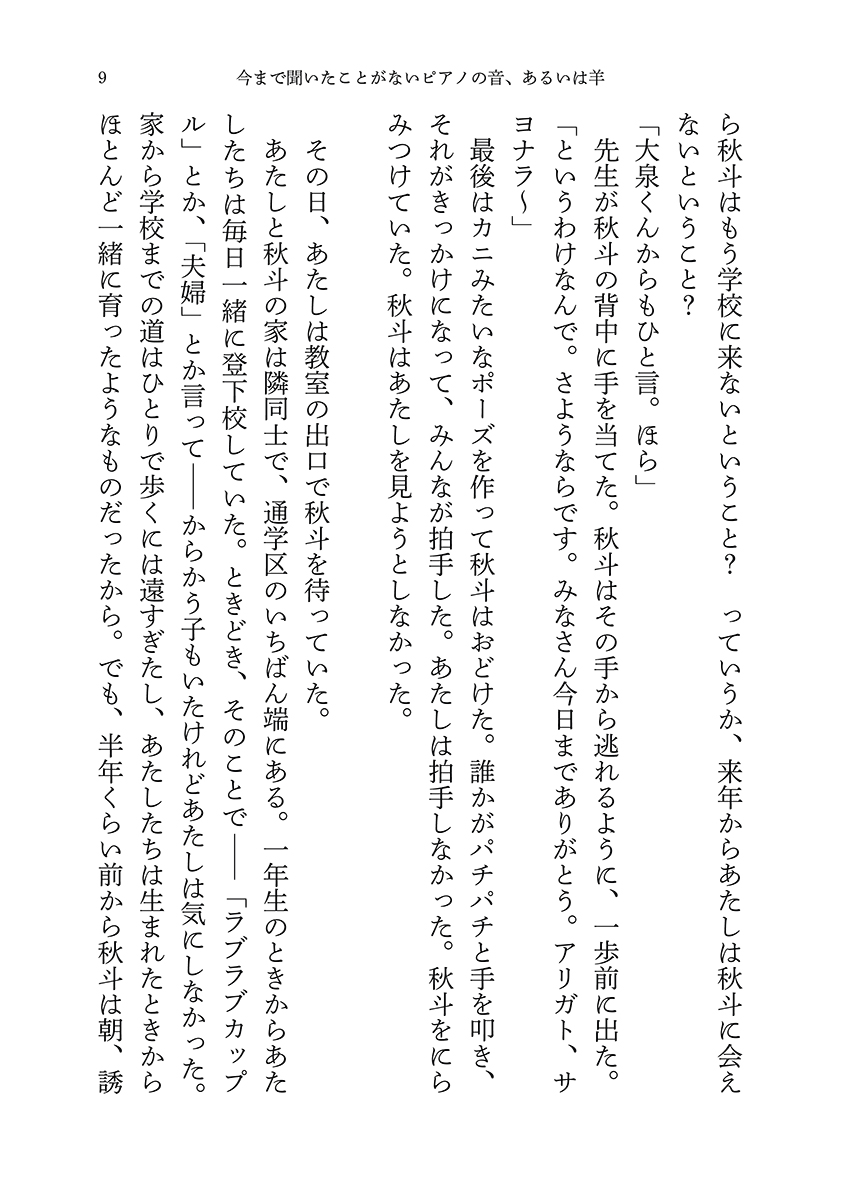 9
今まで聞いたことがないピアノの音、あるいは羊
ら秋斗はもう学校に来ないということ？　っていうか、来年からあたしは秋斗に会え
ないということ？
「大泉くんからもひと言。ほら」
　先生が秋斗の背中に手を当てた。秋斗はその手から逃れるように、一歩前に出た。
「というわけなんで。さようならです。みなさん今日までありがとう。アリガト、サ
ヨナラ～」
　最後はカニみたいなポーズを作って秋斗はおどけた。誰かがパチパチと手を叩き、
それがきっかけになって、みんなが拍手した。あたしは拍手しなかった。秋斗をにら
みつけていた。秋斗はあたしを見ようとしなかった。
　その日、あたしは教室の出口で秋斗を待っていた。
　あたしと秋斗の家は隣同士で、通学区のいちばん端にある。一年生のときからあた
したちは毎日一緒に登下校していた。ときどき、そのことで――「ラブラブカップ
ル」とか、「夫婦」とか言って――からかう子もいたけれどあたしは気にしなかった。
家から学校までの道はひとりで歩くには遠すぎたし、あたしたちは生まれたときから
ほとんど一緒に育ったようなものだったから。でも、半年くらい前から秋斗は朝、誘